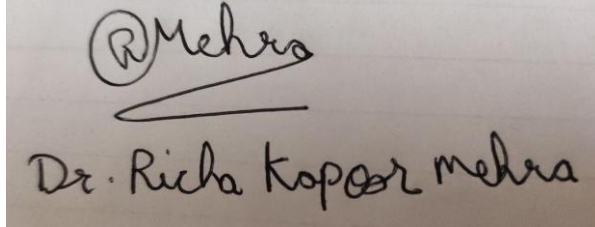 RMehra
Dr. Richa Kapoor Mehra